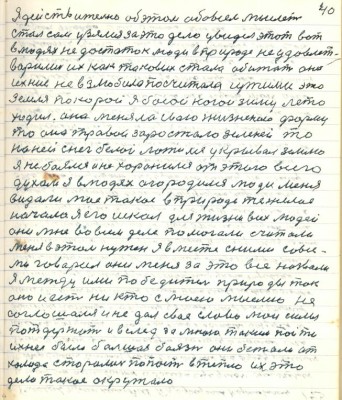 40
Я действительно об этом обовсем мыслит
стал сам узялся за это дело увидел этот вот
в людях недостаток люди в природе не удовлет-
варили их как таковых стала обижат она
их ние не взлюбила посчитала чужими это
земля по корой я босой ногой зиму лето
ходил. она меняла сваю жизненаю форму
то она травой заростало зеленей то
на ней снег белой ложился укривал землю
Я не боялся и не хоранился от этого всего
духам я в людях огородился люди меня
видали мае такое в природе тежилае
начала я его искал для жизни всех людей
они мне во всем деле помогали считали
меня в этом нужен я вместе с ними сове-
ли говарил они меня за это все назвали
Я между ими победител природы так
оно и ест ни кто с маею мыслию не
согласился и не дал свае слово мои силы
потдержат и вслед за мною таким пойти
у них ее была балшая боязн они встали от
холода сторалис попаст в тепло их это
дело такое окружало